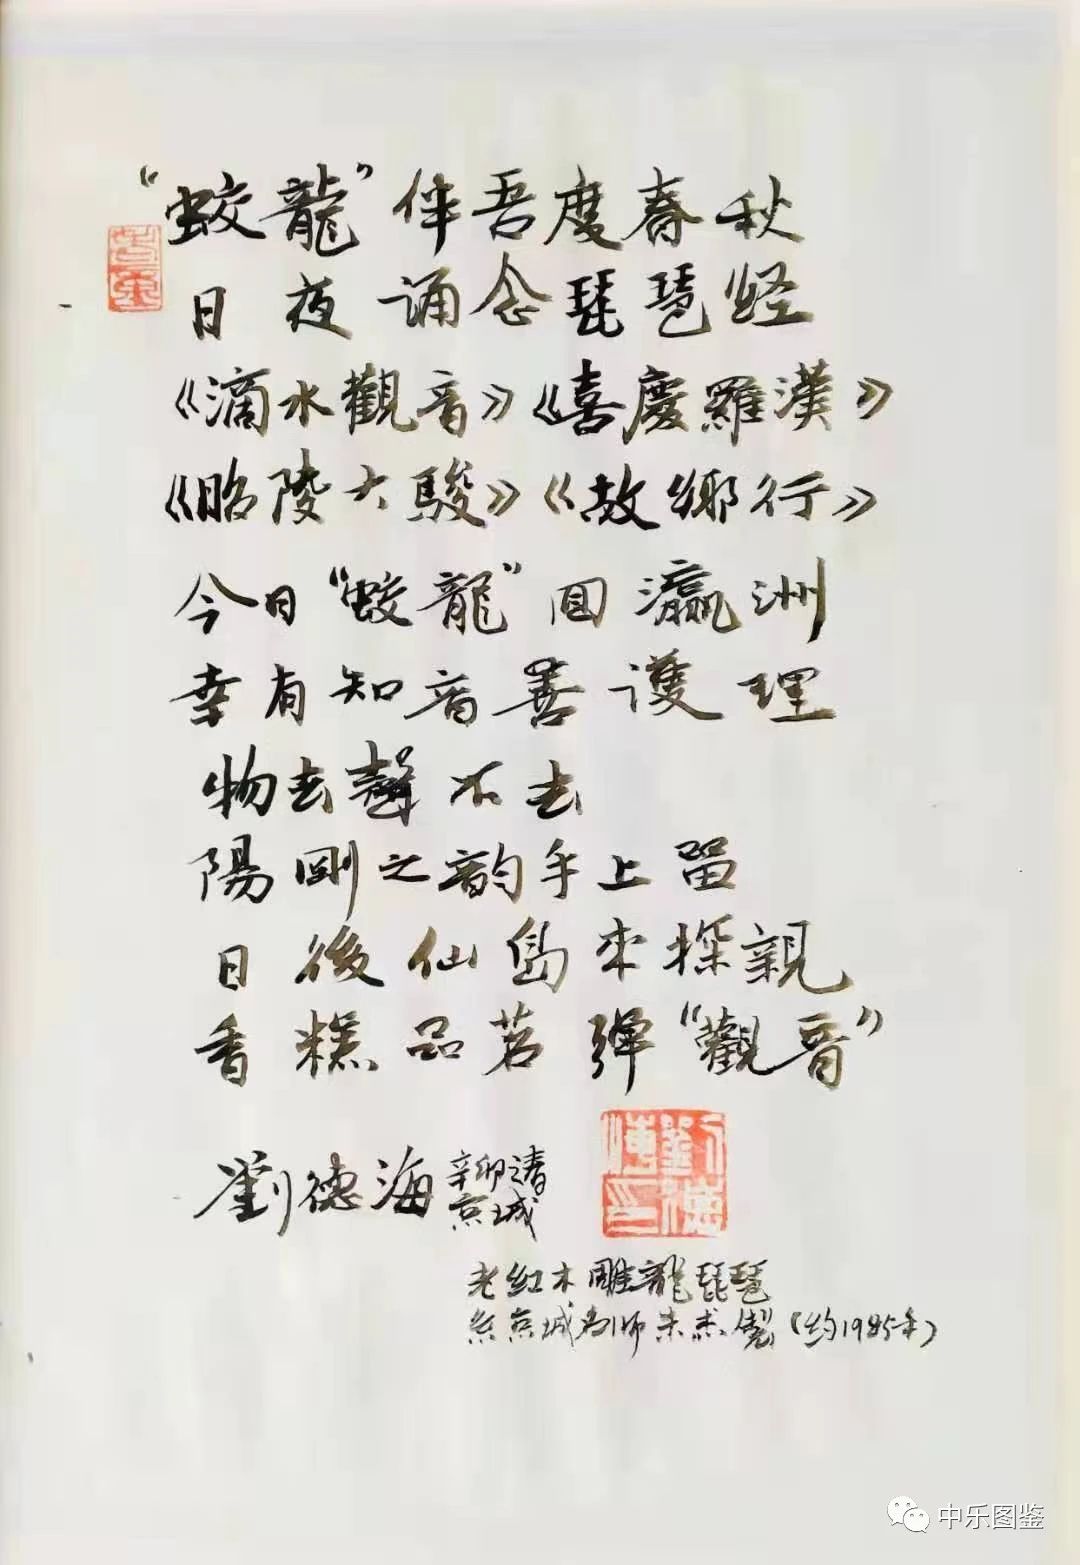 “蛟龍”伴吾度春秋
日夜诵念琵琶経
《滴水觀音》《喜慶羅漢》
《昭陵大駿》《故鄉行》
今日“蛟龍”回瀛洲
幸有知音善護理
物去聲不去
陽剛之韵手上留
日後仙島来探親
香糕品茗彈“觀音”
劉德海
辛卯清
京城
老红木雕龍琵琶
系京城制师朱杰製(约1985年)
中乐图鉴